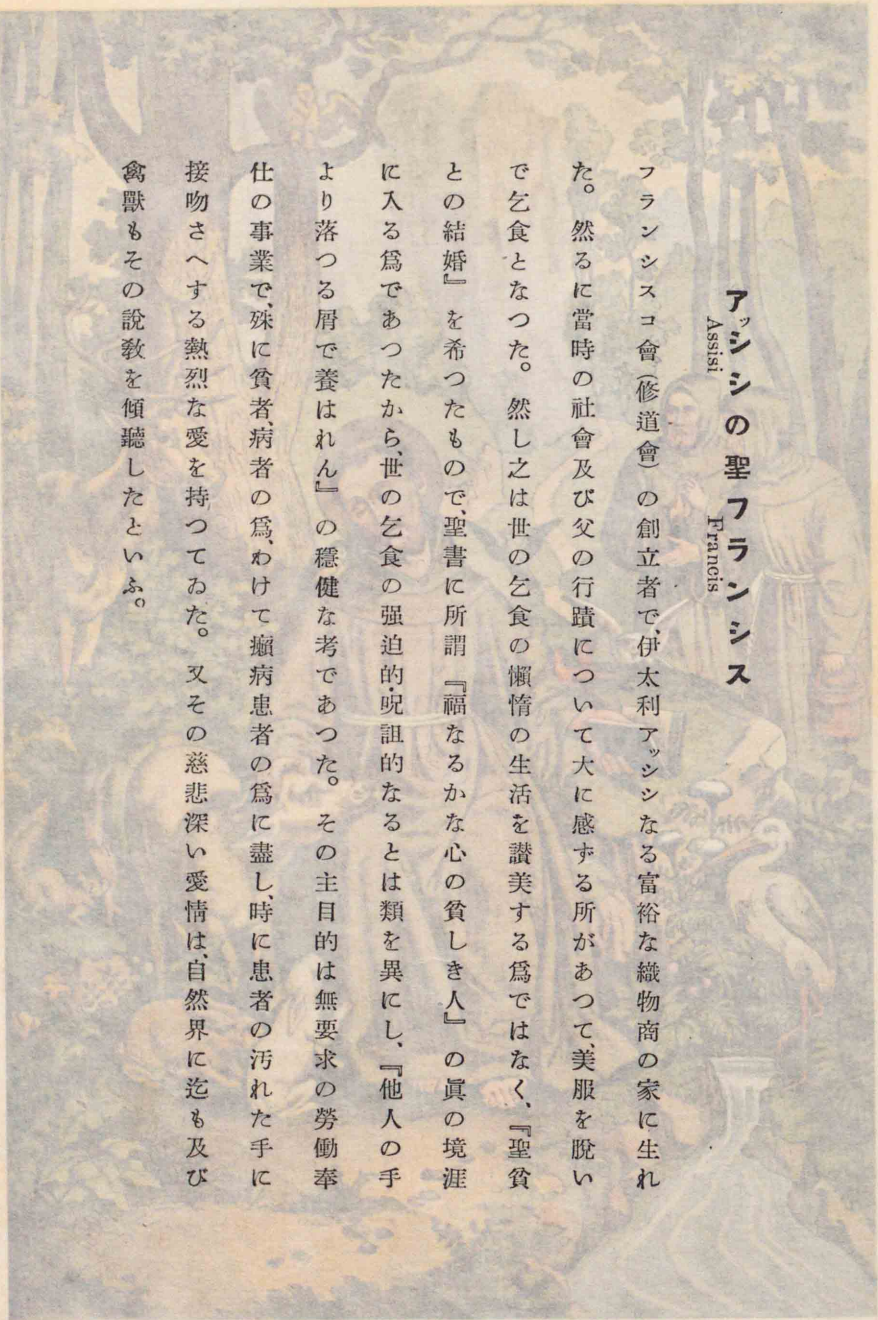 アッシシの聖フランシス
Assisi Francis
フランシスコ會(修道會)の創立者で、伊太利アッシシなる富裕な織物商の家に生れ
た。然るに當時の社會及び父の行蹟について大に感ずる所があつて、美服を脫い
で乞食となつた。然し之は世の乞食の懶惰の生活を讃美する爲ではなく、『聖貧
との結婚』を希つたもので、聖書に所謂『福なるかな心の貧しき人』の眞の境涯
に入る爲であつたから、世の乞食の强迫的・呪詛的なるとは類を異にし、『他人の手
より落つる屑で養はれん』の穩健な考であつた。その主目的は無要求の勞働奉
仕の事業で、殊に貧者、病者の爲、わけて癩病患者の爲に盡し、時に患者の汚れた手に
接吻さへする熱烈な愛を持つてゐた。又その慈悲深い愛情は、自然界に迄も及び
禽獸もその說敎を傾聽したといふ。